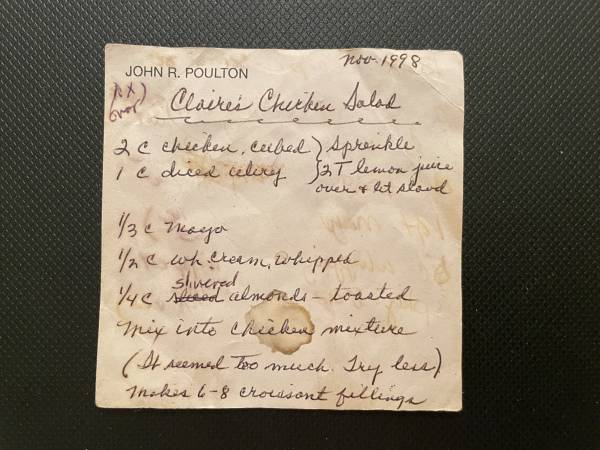 Nov. 1998
JOHN R. POULTON
over
Claire's Chicken Salad
2 c chicken, cubed } Sprinkle
1 c diced celery } 2 T lemon juice
over & let stand
1/3 c Mayo
1/2 c wh. cream, whipped
slivered
1/4 c sliced almonds - toasted
Mix into chicken mixture
(It seemed too much. Try less)
Makes 6-8 croissant fillings